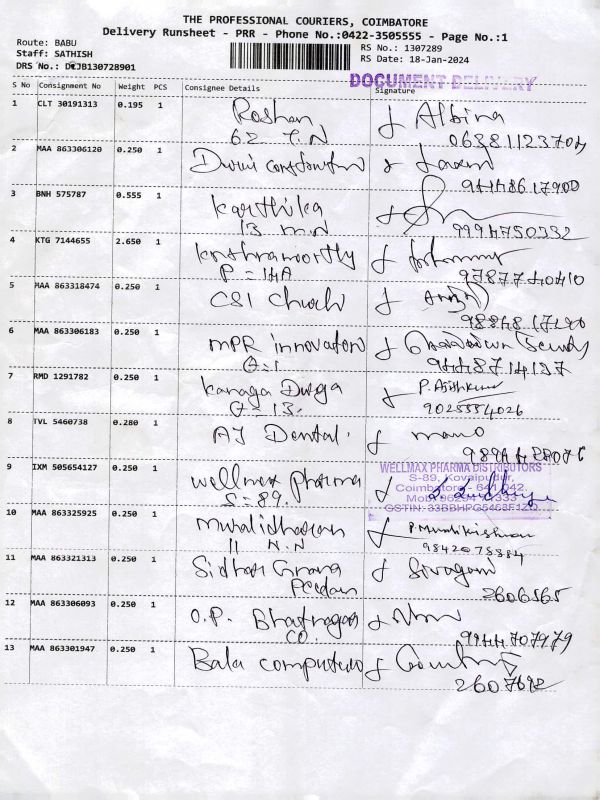 THE PROFESSIONAL COURIERS, COIMBATORE
Delivery Runsheet - PRR - Phone No.:0422-3505555 - Page No.:1
Route: BABU
Staff: SATHISH
DRS No.: DCJB130728901
RS No.: 1307289
RS Date: 18-Jan-2024
DOCUMENT DELIVERY
S No Consignment No Weight PCS Consignee Details Signature
1 CLT 30191313 0.195 1 Roshan Albina
62 T.N
2 MAA 863306120 0.250 1
3 BNH 575787 0.555 1 Karthika
13 M.N 9994750332
4 KTG 7144655 2.650 1
P = 14A 9787740410
5 MAA 863318474 0.250 1 CSI Church
6 MAA 863306183 0.250 1 MPR innovation
9448714137
7 RMD 1291782 0.250 1 Kanaga Durga P. Ajithkumar
9025554026
8 TVL 5460738 0.280 1 AJ Dental. mano
9 IXM 505654127 0.250 1 wellmax pharma
S = 89.
WELLMAX PHARMA DISTRIBUTORS
S-89, Kovaipudur,
Coimbatore - 641 042.
10 MAA 863325925 0.250 1 Muralidharan P. Muralikrishnan
11 N.N 9842075384
11 MAA 863321313 0.250 1 Sivagami
2606565
12 MAA 863306093 0.250 1 O.P. Bhatnagar
CO. 9944707979
13 MAA 863301947 0.250 1 Bala computers